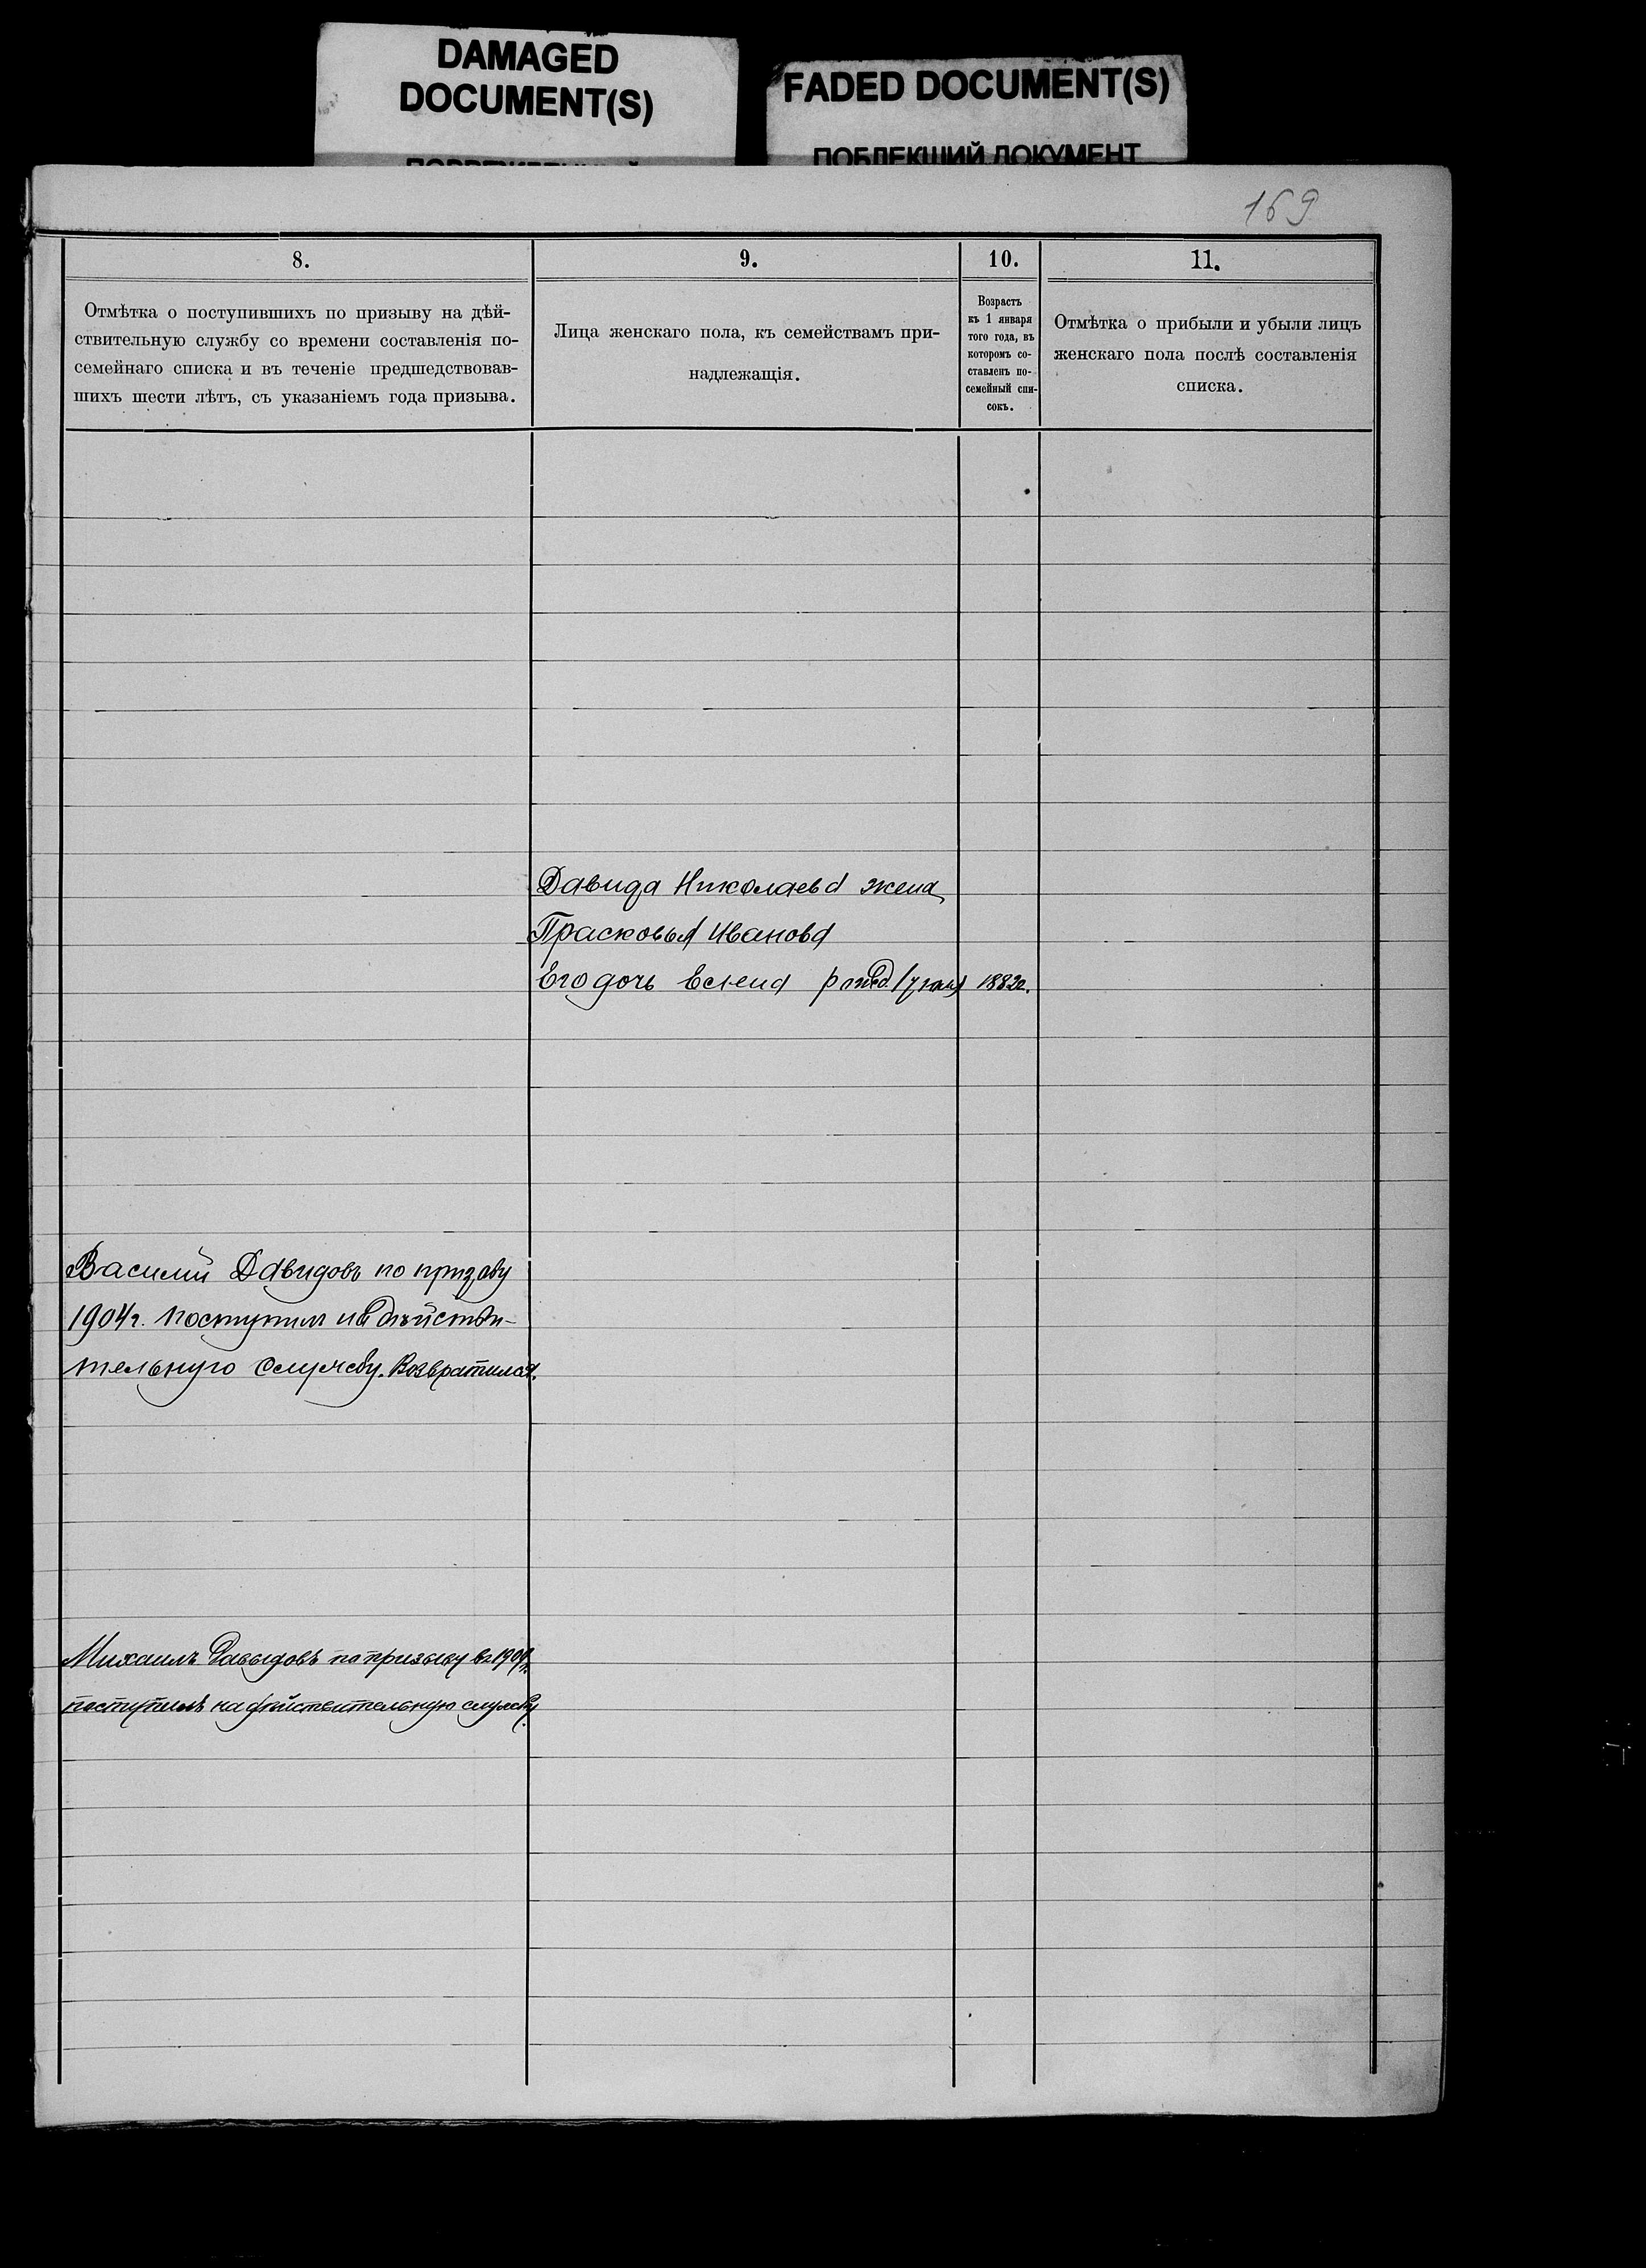 DAMAGED
DOCUMENT(S)
FADED DOCUMENT(S)
ПОБЛЕКШИЙ ДОКУМЕНТ
169
8.
9.
10.
11.
Отмѣтка о поступившихъ по призыву на дѣй-
ствительную службу со времени составленія по-
семейнаго списка и въ теченіе предшедствовав-
шихъ шести лѣтъ, съ указаніемъ года призыва.
Лица женскаго пола, къ семействамъ при-
надлежащія.
Возрастъ
къ 1 января
того года, въ
которомъ со-
ставленъ по-
семейный спи-
сокъ.
Отмѣтка о прибыли и убыли лицъ
женскаго пола послѣ составленія
списка.
Давида Николаева жена
Прасковья Иванова
Его дочь 1882г.
Василий Давидовъ по призыву
1904г. поступил на дѣйстви-
тельную службу. Возвратился.
Михаилъ Давыдовъ по призыву въ
поступилъ на дѣйствительную службу.